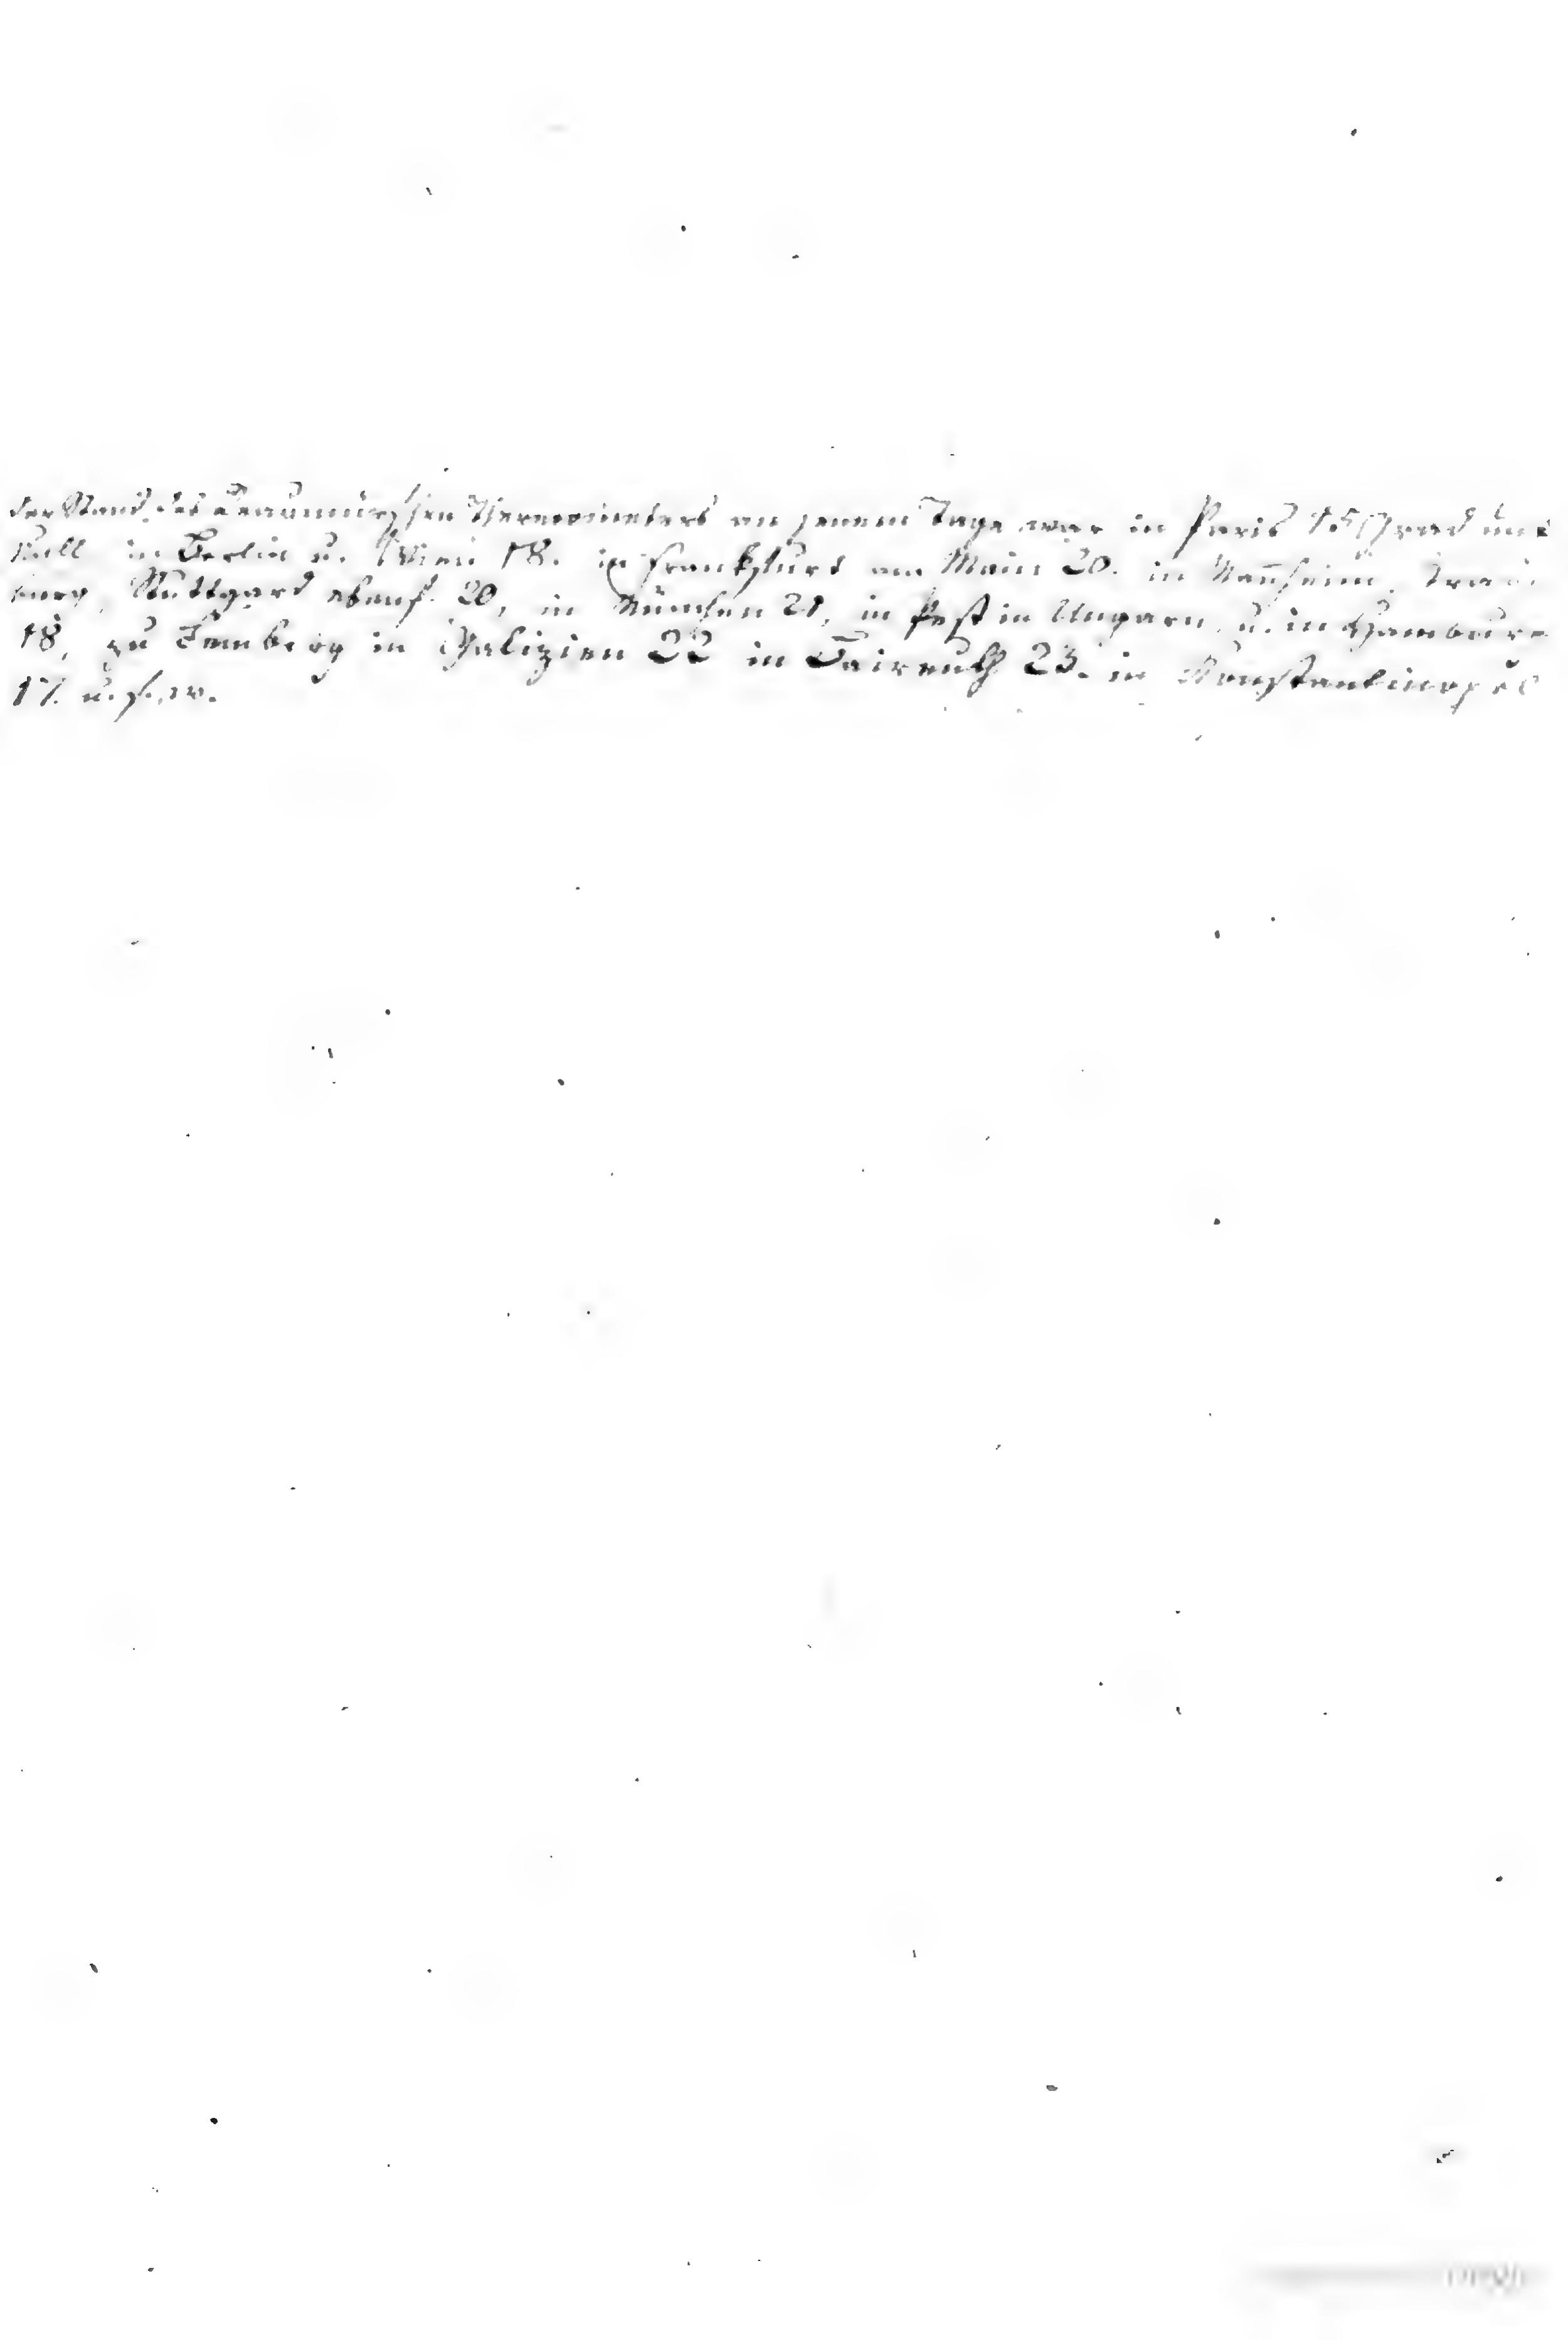 der Stand des Reaumürschen Thermometers an jenem Tage war in Paris 15 Grad unt
Null in Berlin u. Wien 18. in Frankfurt am Main 20. in Mañheim,
burg, Stuttgard ebenf. 20, in München 21, in Pest in Ungarn, u. in Hamburg
18, zu Lemberg in Galizien 22 in Baireuth 23. in Konstantinopel
17. u. s. w.